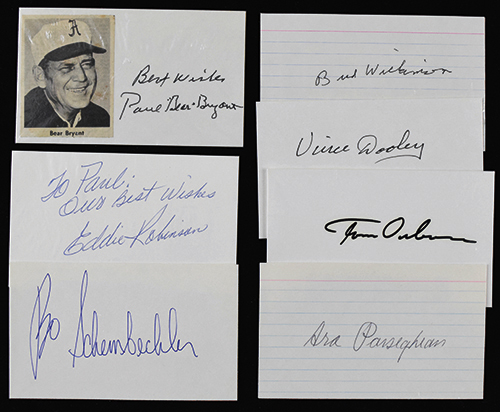 A
Bear Bryant
Best Wishes
Paul "Bear" Bryant
To Paul:
Our Best Wishes
Eddie Robinson
Bo Schembechler
Bud Wilkinson
Vince Dooley
Tom Osborne
Ara Parseghian